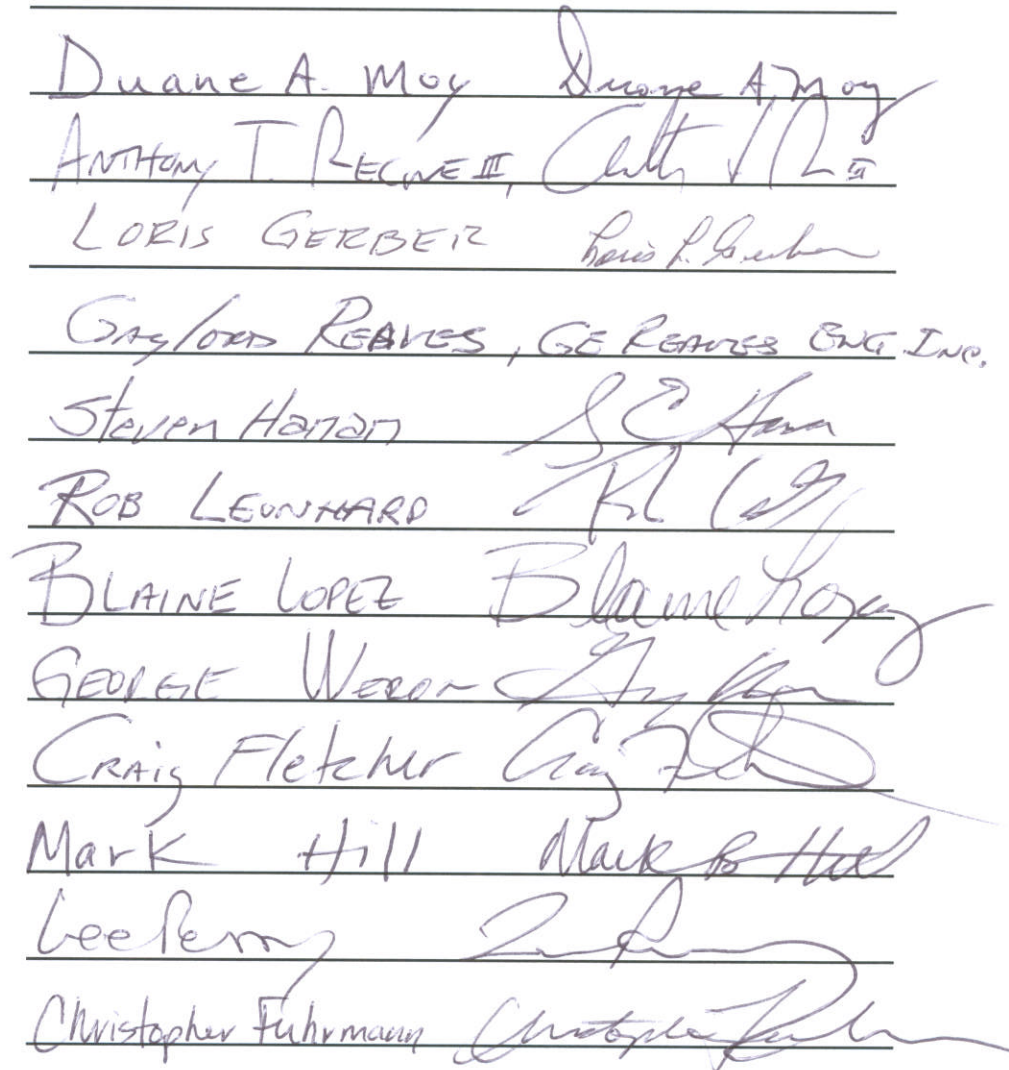 Duane A. Moy Duane A. Moy
ANTHONY T. RECINE III,
LORIS GERBER Loris L. Gerber
GAylORD REAVES, GE REAVES ENG INC.
Steven Hanan S C Hanan
ROB LEONHARD
BLAINE LOPEZ Blaine Lopez
GEORGE
CRAIG Fletcher Craig
Mark Hill Mark B Hill
Lee Perry
Christopher Fuhrmann Christopher